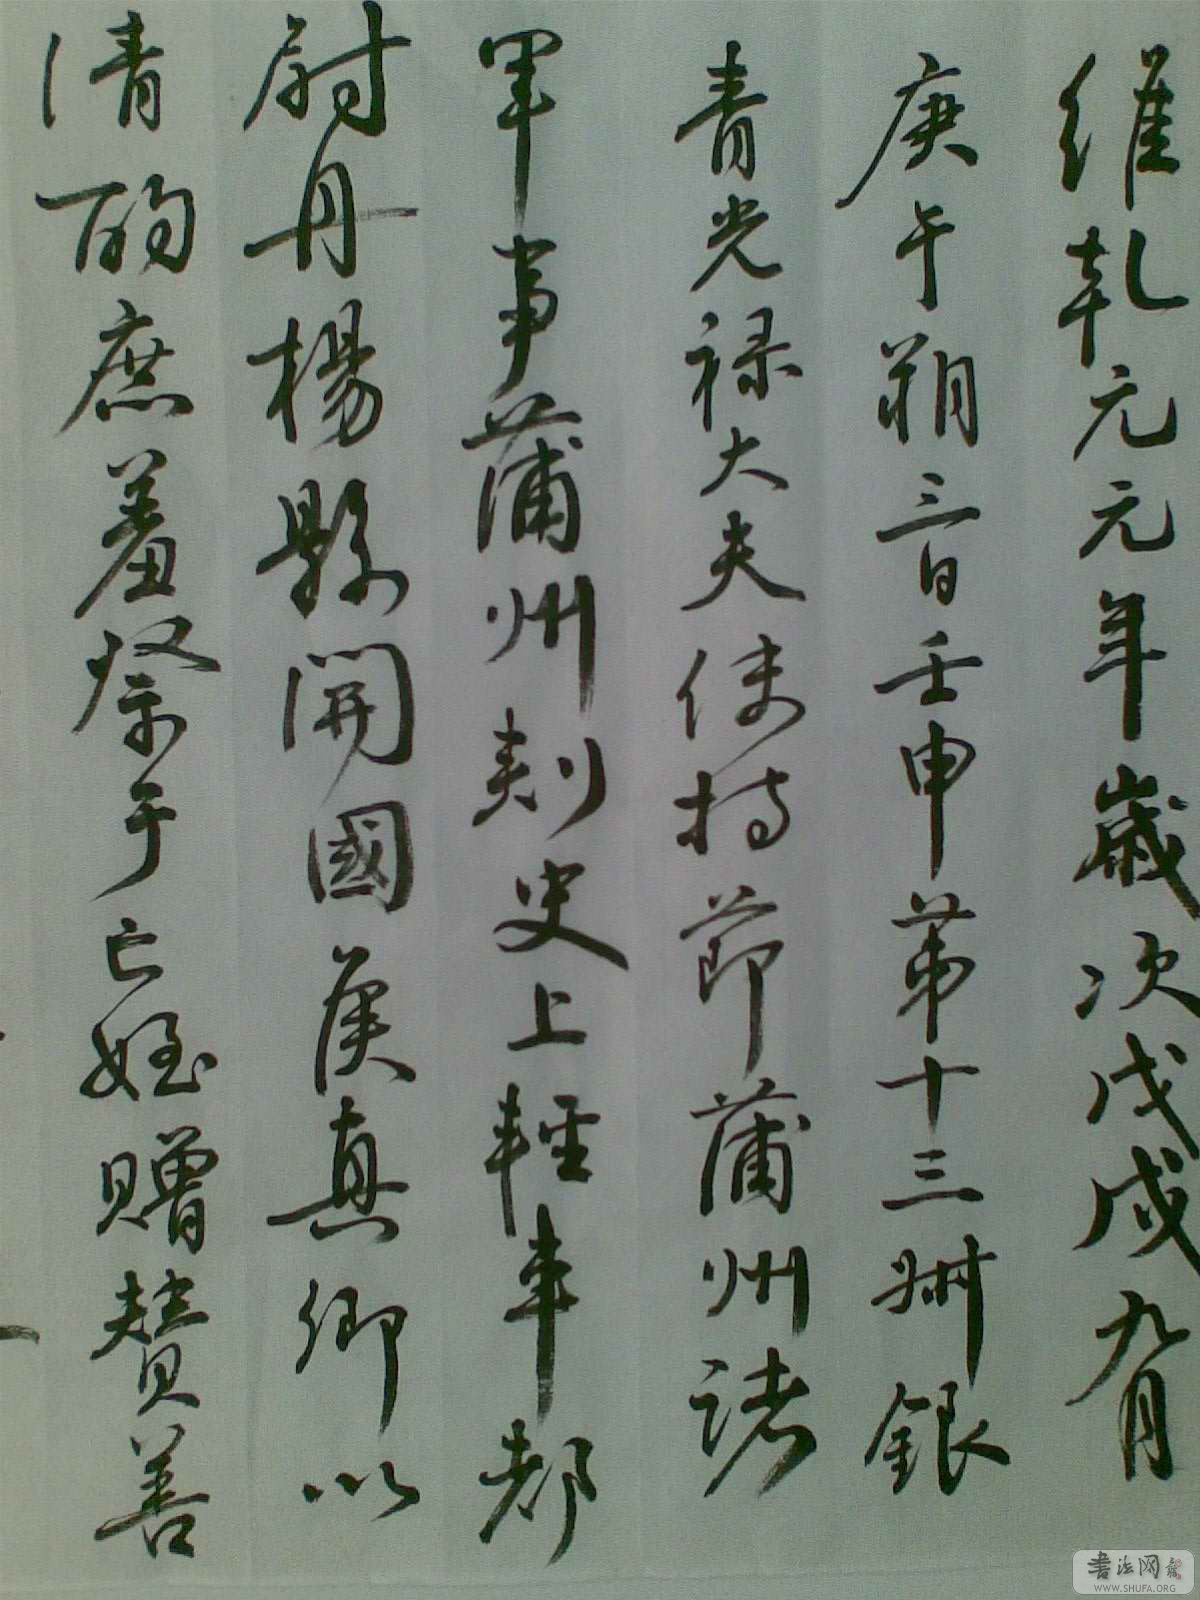 維乹元元年歲次戊戌九月
庚午朔三日壬申第十三叔銀
青光禄大夫使持節蒲州諸
軍事蒲州刺史上輕車都
尉丹楊縣開國侯真卿以
清酌庶羞祭于亡姪贈贊善
書法网
WWW.SHUFA.ORG